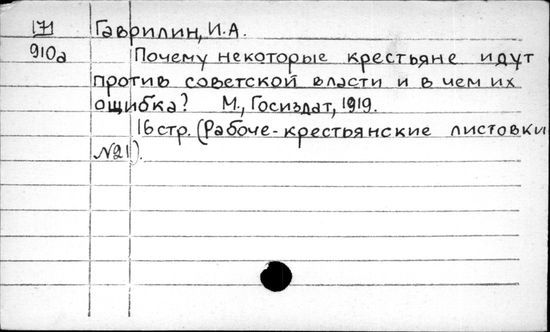 171 Гаврилин, И.А.
910а Почему некоторые крестьяне идут
против советской власти и в чем их
ошибка? М., Госиздат, 1919.
16 стр. (Рабоче-крестьянские листовки
№21).